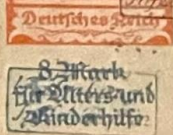 Deutsches Reich
8 Mark
für Alters-und
Kinderhilfe